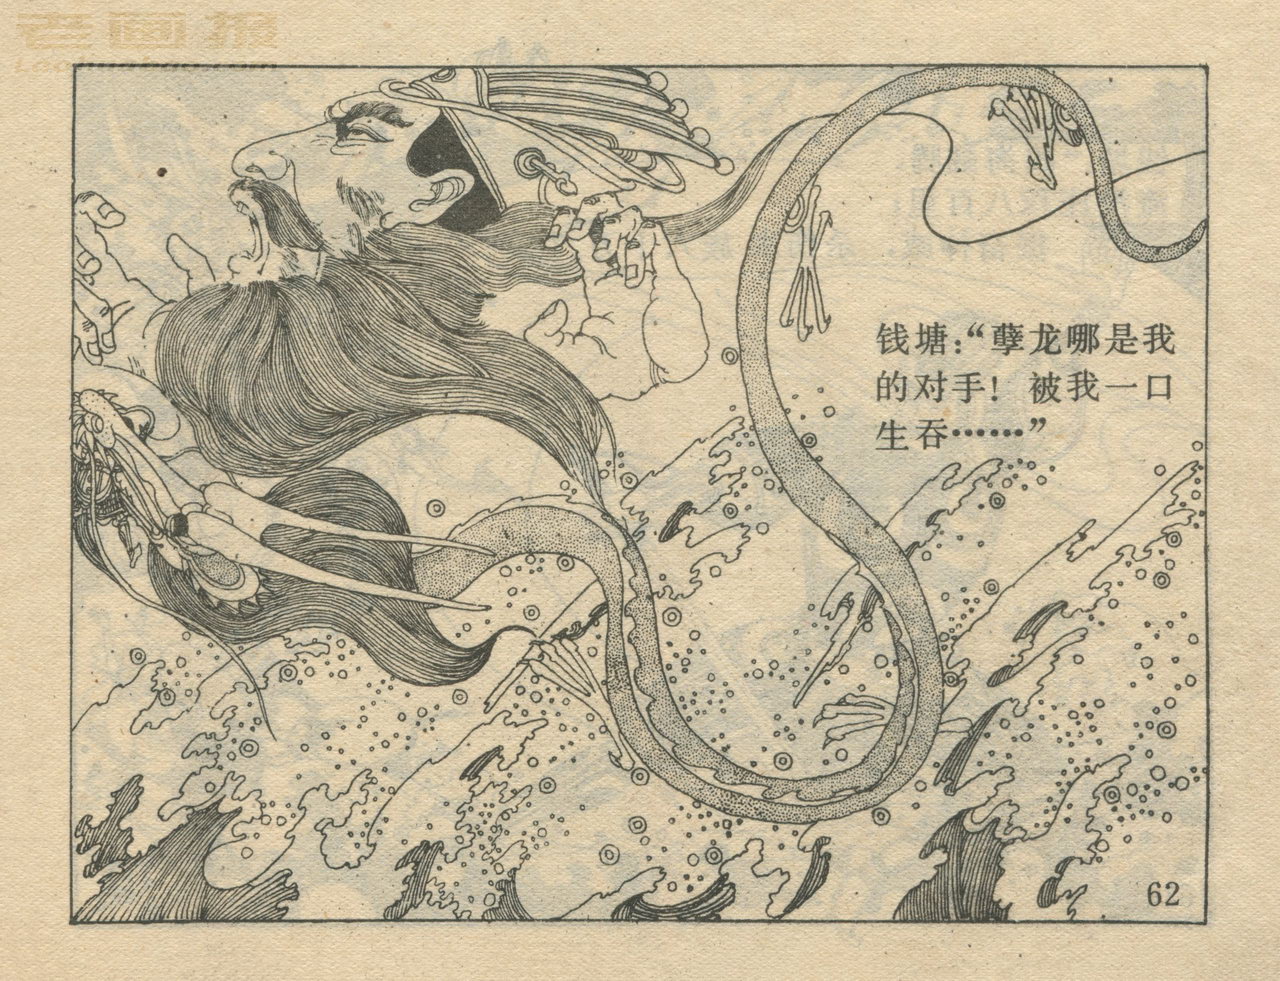 老画报
Laohuabao.com
钱塘：“孽龙哪是我
的对手！被我一口
生吞……”
62